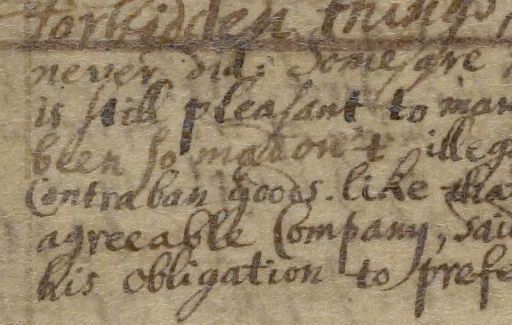 forbidden things
never did: Some are
is still pleasant to man
been so mad on't illeg
Contraban goods. like tha
agreeable Company, said
his obligation to prefe